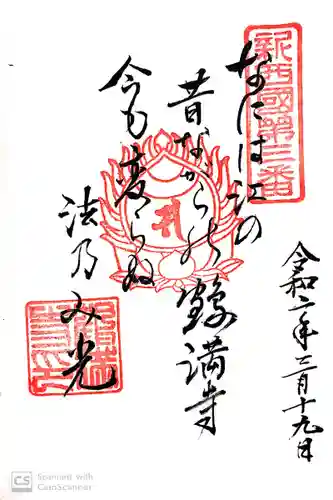 新西國第三番
なには江の
昔ながらの鶴満寺
今も変らぬ
法乃み光
令和二年二月十九日
CS Scanned with
CamScanner